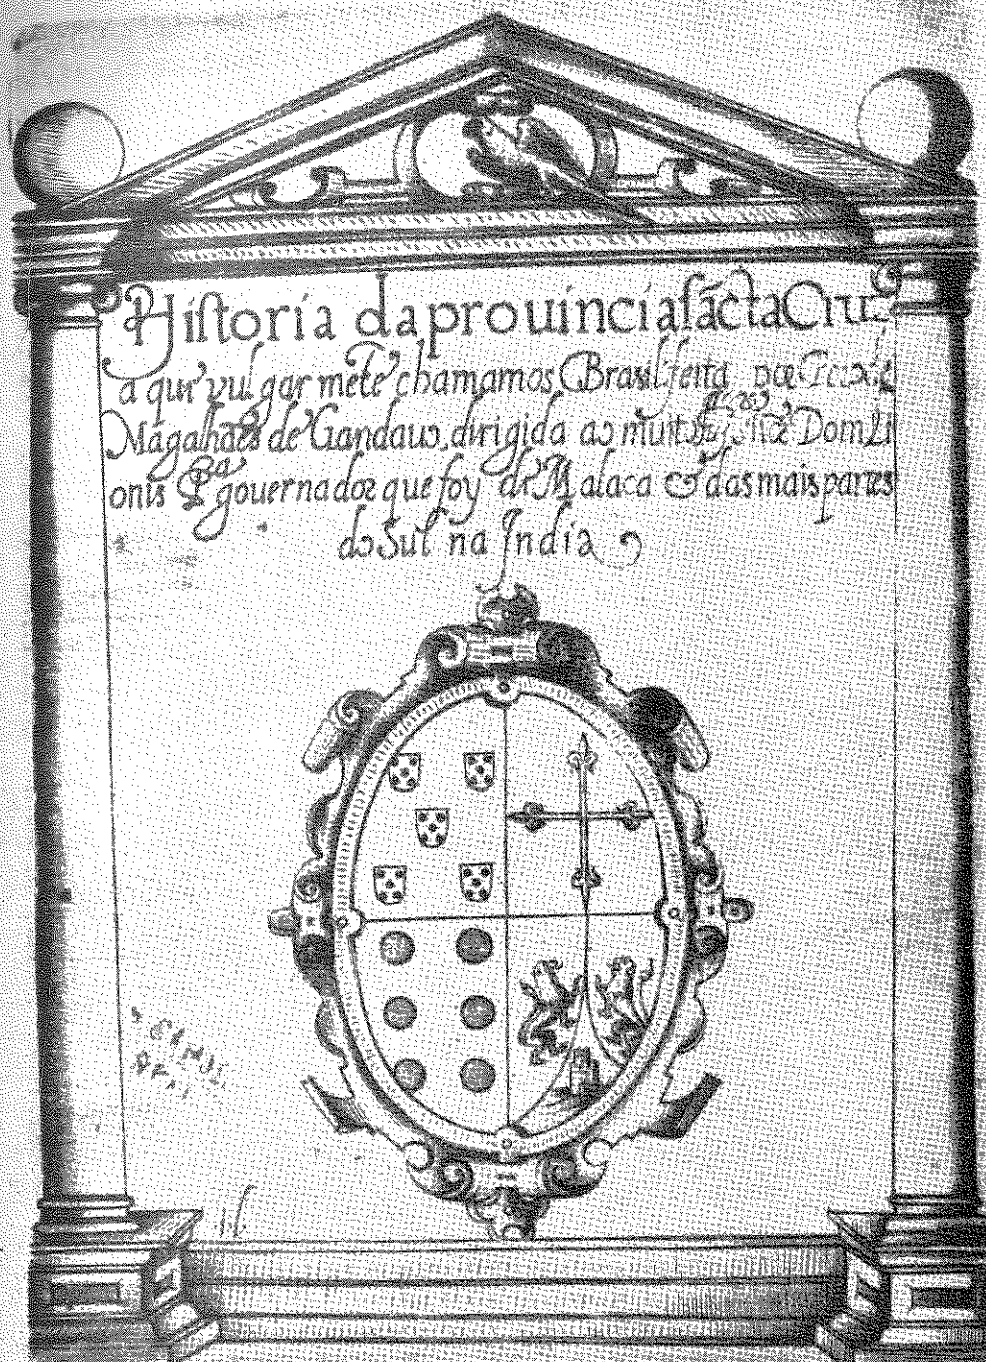 Hiſtoria da prouincia ſãcta Cruz
a que vulgar mẽte chamamos Braſil: feita por Pero de
Magalhães de Gandauo, dirigida ao muito Illꝰᵉ Dom Li
onis Pª gouernador que foy de Malaca & das mais partes
do Sul na India